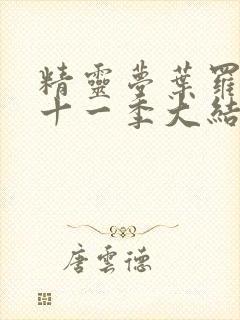 精靈夢葉羅
十一季大結
唐雲德